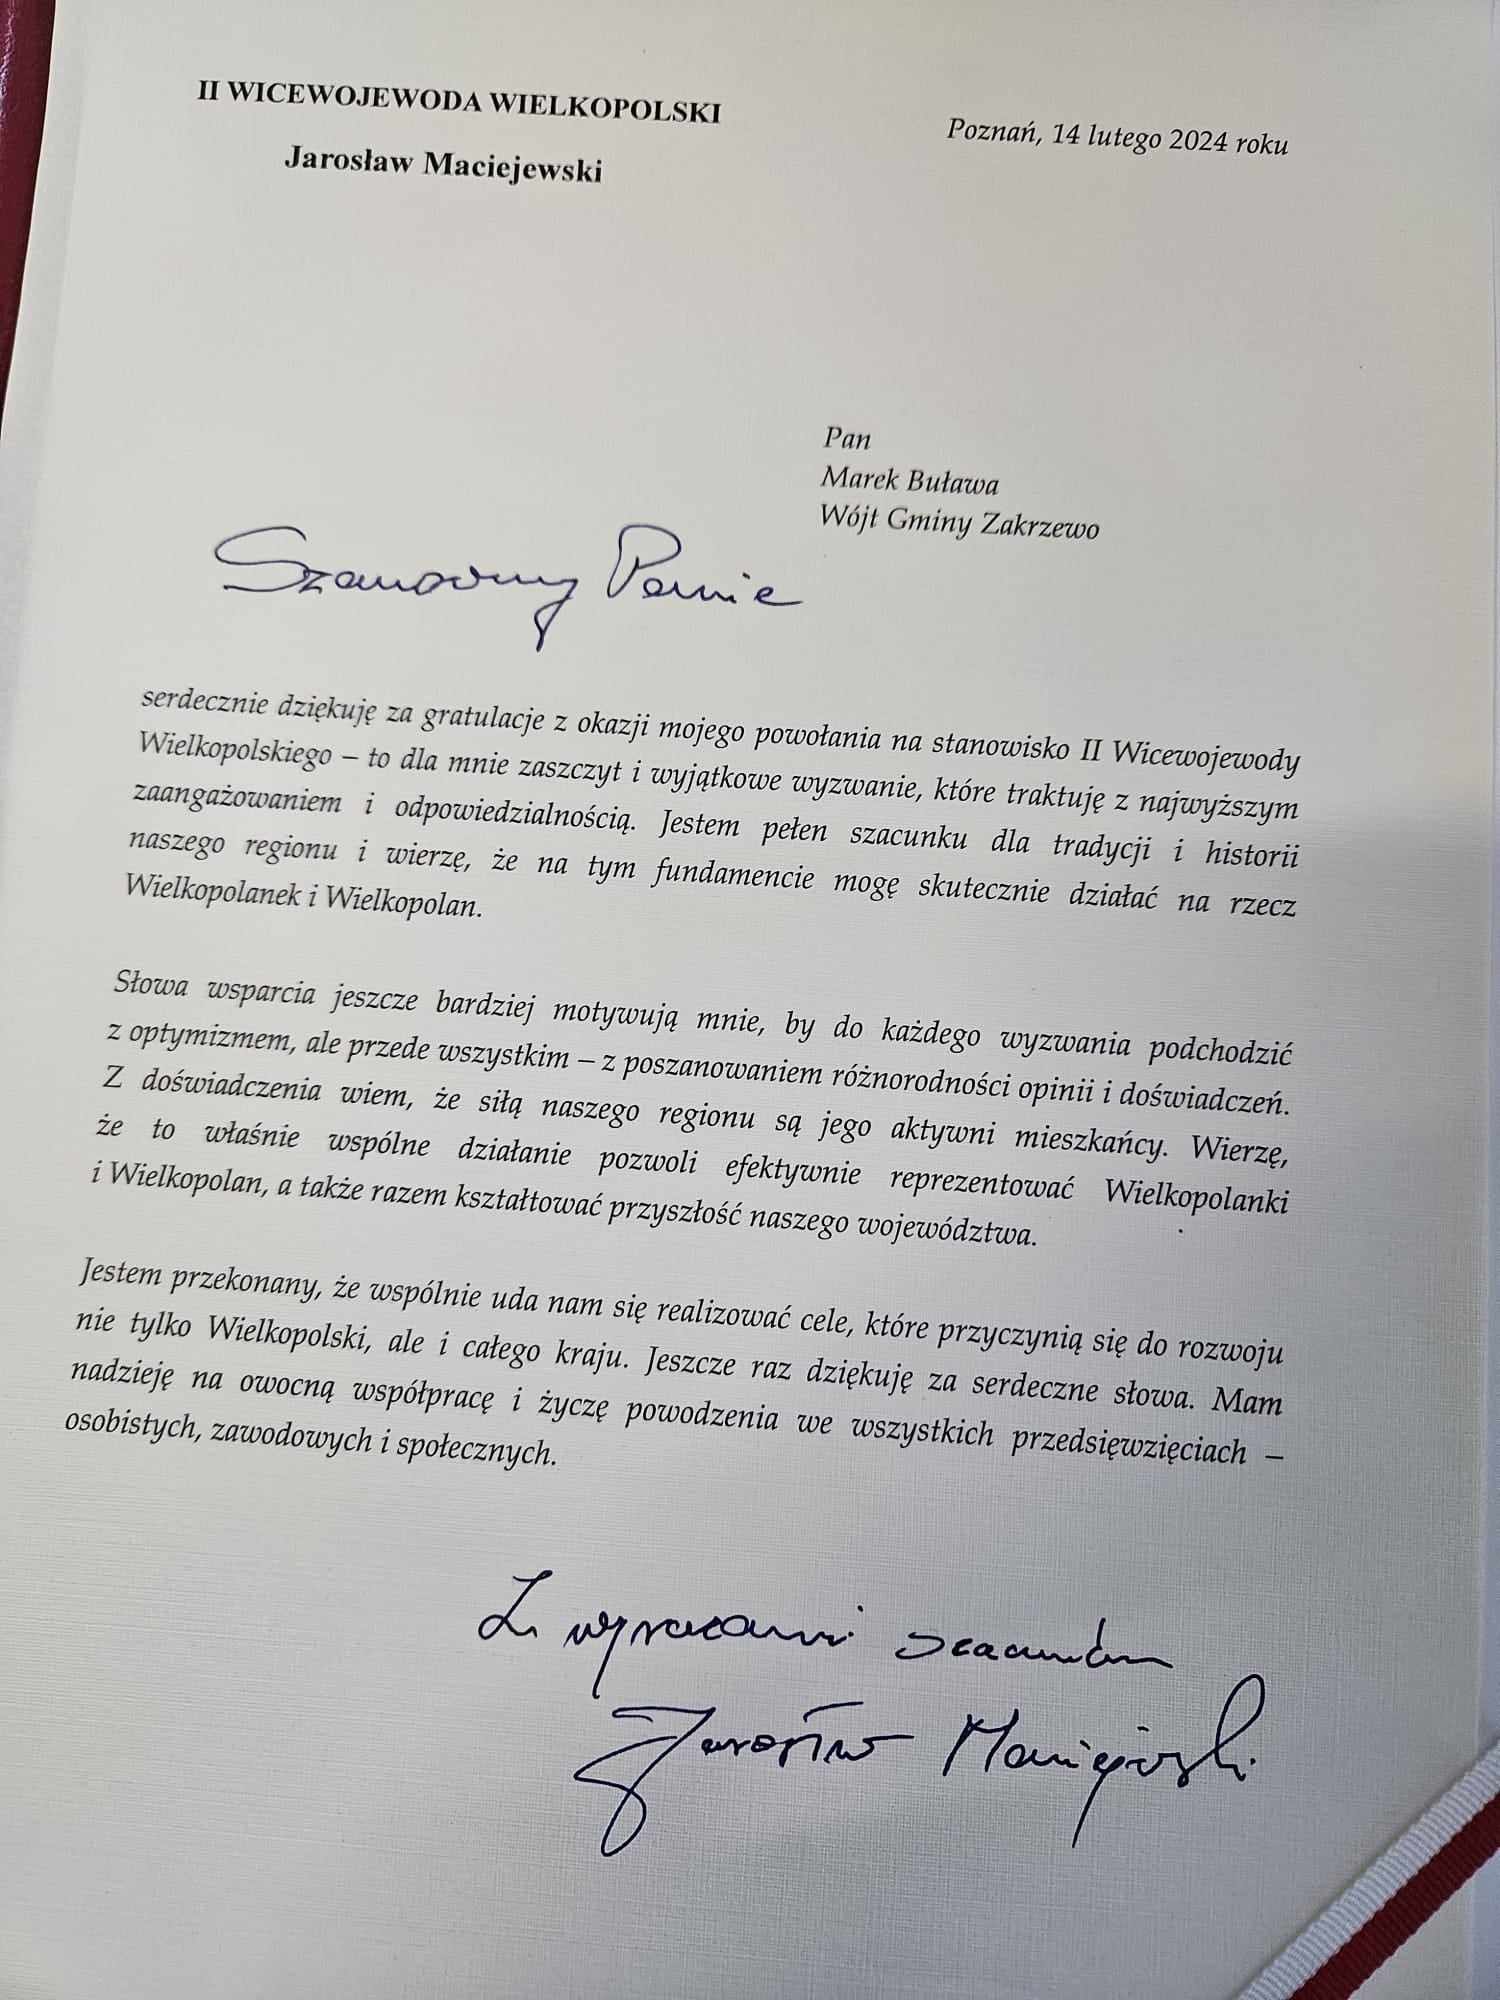 II WICEWOJEWODA WIELKOPOLSKI
Jarosław Maciejewski
Poznań, 14 lutego 2024 roku
Pan
Marek Buława
Wójt Gminy Zakrzewo
Szanowny Panie
serdecznie dziękuję za gratulacje z okazji mojego powołania na stanowisko II Wicewojewody
Wielkopolskiego – to dla mnie zaszczyt i wyjątkowe wyzwanie, które traktuję z najwyższym
zaangażowaniem i odpowiedzialnością. Jestem pełen szacunku dla tradycji i historii
naszego regionu i wierzę, że na tym fundamencie mogę skutecznie działać na rzecz
Wielkopolanek i Wielkopolan.
Słowa wsparcia jeszcze bardziej motywują mnie, by do każdego wyzwania podchodzić
z optymizmem, ale przede wszystkim – z poszanowaniem różnorodności opinii i doświadczeń.
Z doświadczenia wiem, że siłą naszego regionu są jego aktywni mieszkańcy. Wierzę,
że to właśnie wspólne działanie pozwoli efektywnie reprezentować Wielkopolanki
i Wielkopolan, a także razem kształtować przyszłość naszego województwa.
Jestem przekonany, że wspólnie uda nam się realizować cele, które przyczynią się do rozwoju
nie tylko Wielkopolski, ale i całego kraju. Jeszcze raz dziękuję za serdeczne słowa. Mam
nadzieję na owocną współpracę i życzę powodzenia we wszystkich przedsięwzięciach –
osobistych, zawodowych i społecznych.
Z wyrazami szacunku
Jarosław Maciejewski